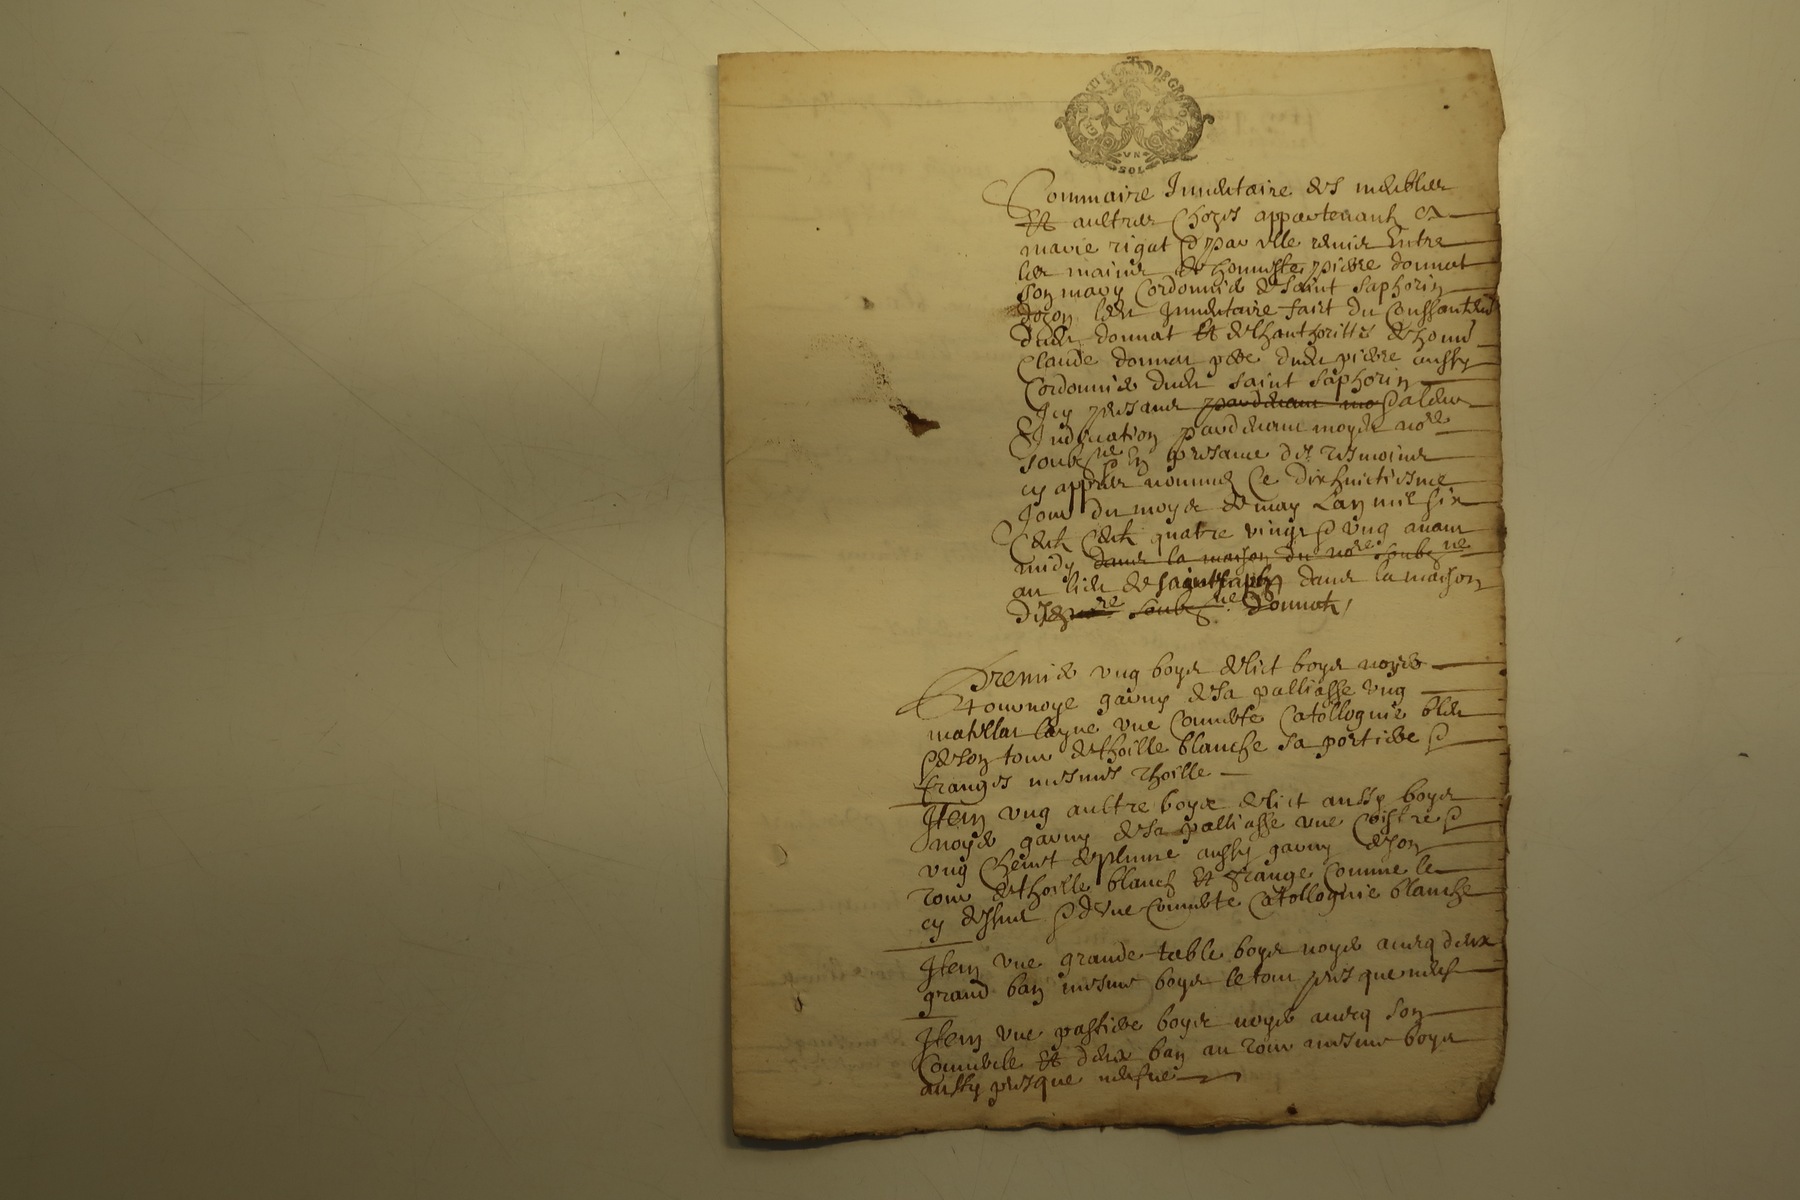 UN
SOL
Sommaire Inventaire des meubles
Et aultres Chozes appartenant a
marie rigat & par elle remis Entre
les mains de honneste pierre donnat
son mary Cordonnier de saint saphorin
dozon led Inventaire fait du Conssantem
dud donnat Et de lhauthorittes de hon
Claude donnat pere dud pierre aussy
Cordonnier dud saint saphorin
Icy presant par devant no & a leur
Indication par devant moyd no.re
soubz.ne & En presance des tesmoins
cy appres nommes Ce dixhuictiesme
Jour du moys de may Lan mil six
Cent quatre vingt & ung avant
midy dans la maison du no.re soubz.ne
au lieu de saint saph.n dans la maison
no.re soubz.ne donnat
Premier ung boys de lict boys noyer
tournoye garny de sa palliasse ung
mattellas layne une Couverte Catollognie bleu
& de son tour de thoille blanche sa portiere &
franges mesmes thoille
Item ung aultre boys de lict aussy boys
noyer garny de sa palliasse une Coistre &
ung Chevet de plume aussy garny de son
tour de thoille blanch Et frange Comme le
cy dessus & dune Couverte Catollognie blanche
Item une grande table boys noyer avecq deux
grand ban mesme boys le tout presque neuf
Item une pastiere boys noyer avecq son
Couvercle Et deux ban au tour mesme boys
aussy presque neufve